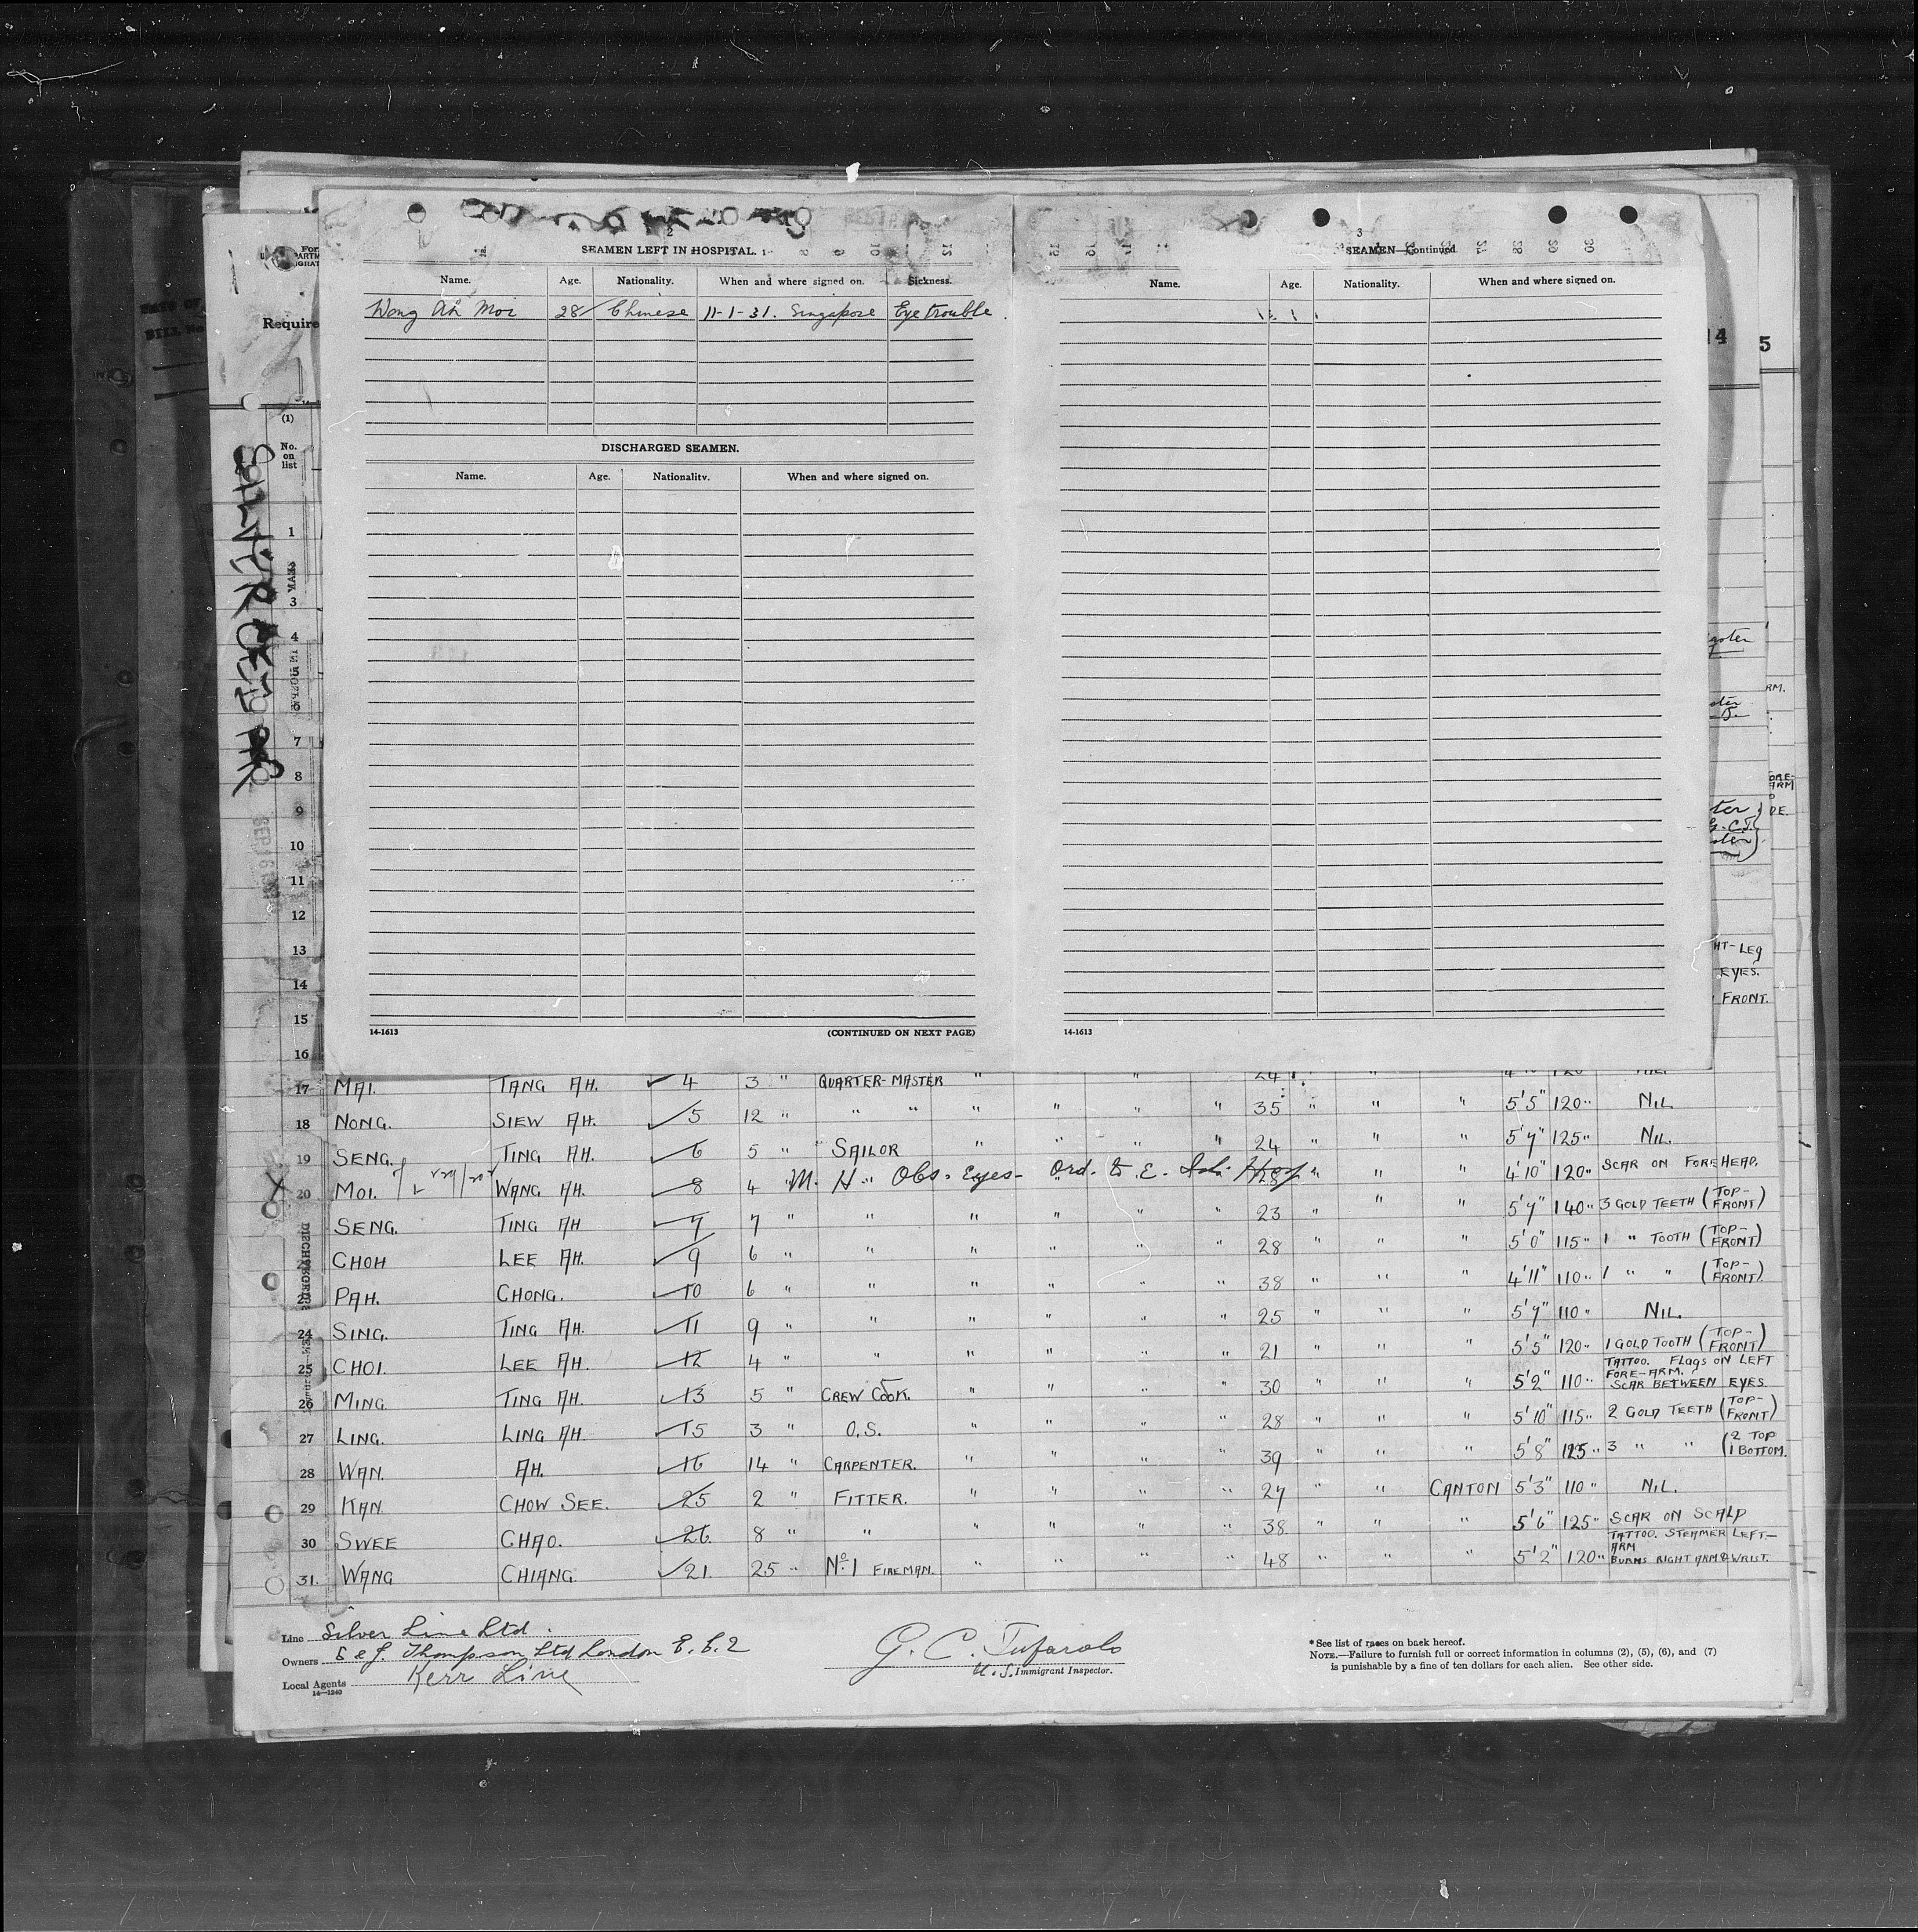 2
SEAMEN LEFT IN HOSPITAL.
Name. Age. Nationality. When and where signed on. Sickness.
Wong Ah Moi 28 Chinese 11-1-31. Singapore Eye trouble.
DISCHARGED SEAMEN.
Name. Age. Nationality. When and where signed on.
14-1613 (CONTINUED ON NEXT PAGE)
3
SEAMEN—Continued
Name. Age. Nationality. When and where signed on.
14-1613
Require
14
5
(1)
No. on list
1
3
4
6
7
8
9
10
11
12
13
14
15
16
HT-LEG
EYES.
FRONT.
17 MAI. TANG AH. 4 3 " QUARTER-MASTER " " 24
18 NONG. SIEW AH. 5 12 " " " " " " " 35 " " " 5'5" 120 " NIL.
19 SENG. TING AH. 6 5 " SAILOR " " " " 24 " " " 5'7" 125 " NIL.
20 MOI. WANG AH. 8 4 " M. H. Obs. Eyes- Ord. to E. Isl. Hosp. 28 " " " 4'10" 120 " SCAR ON FOREHEAD.
SENG. TING AH 7 7 " " " " " " 23 " " " 5'7" 140 " 3 GOLD TEETH (TOP-FRONT)
CHOH LEE AH. 9 6 " " " " " " 28 " " " 5'0" 115 " 1 " TOOTH (TOP-FRONT)
23 PAH. CHONG. 10 6 " " " " " " 38 " " " 4'11" 110 " 1 " " (TOP-FRONT)
24 SING. TING AH. 11 9 " " " " " " 25 " " " 5'7" 110 " NIL.
25 CHOI. LEE AH. 12 4 " " " " " " 21 " " " 5'5" 120 " 1 GOLD TOOTH (TOP-FRONT)
26 MING. TING AH. 13 5 " CREW COOK. " " " " 30 " " " 5'2" 110 " TATTOO. FLAGS ON LEFT FORE-ARM. SCAR BETWEEN EYES.
27 LING. LING AH. 15 3 " O.S. " " " " 28 " " " 5'10" 115 " 2 GOLD TEETH (TOP-FRONT)
28 WAN. AH. 16 14 " CARPENTER. " " " " 39 " " " 5'8" 125 " 3 " " (2 TOP 1 BOTTOM.
29 KAN. CHOW SEE. 25 2 " FITTER. " " " " 27 " " CANTON 5'3" 110 " NIL.
30 SWEE CHAO. 26 8 " " " " " " 38 " " " 5'6" 125 " SCAR ON SCALP
31. WANG CHIANG. 21 25 " No. 1 FIREMAN. " " " " 48 " " " 5'2" 120 " TATTOO. STEAMER LEFT-ARM BURNS RIGHT ARM & WRIST.
Line Silver Line Ltd.
Owners S & J. Thompson Ltd London E.C.2
Local Agents Kerr Line
14-1240
G. C. Tufarolo
U. S. Immigrant Inspector.
*See list of races on back hereof.
NOTE.—Failure to furnish full or correct information in columns (2), (5), (6), and (7)
is punishable by a fine of ten dollars for each alien. See other side.